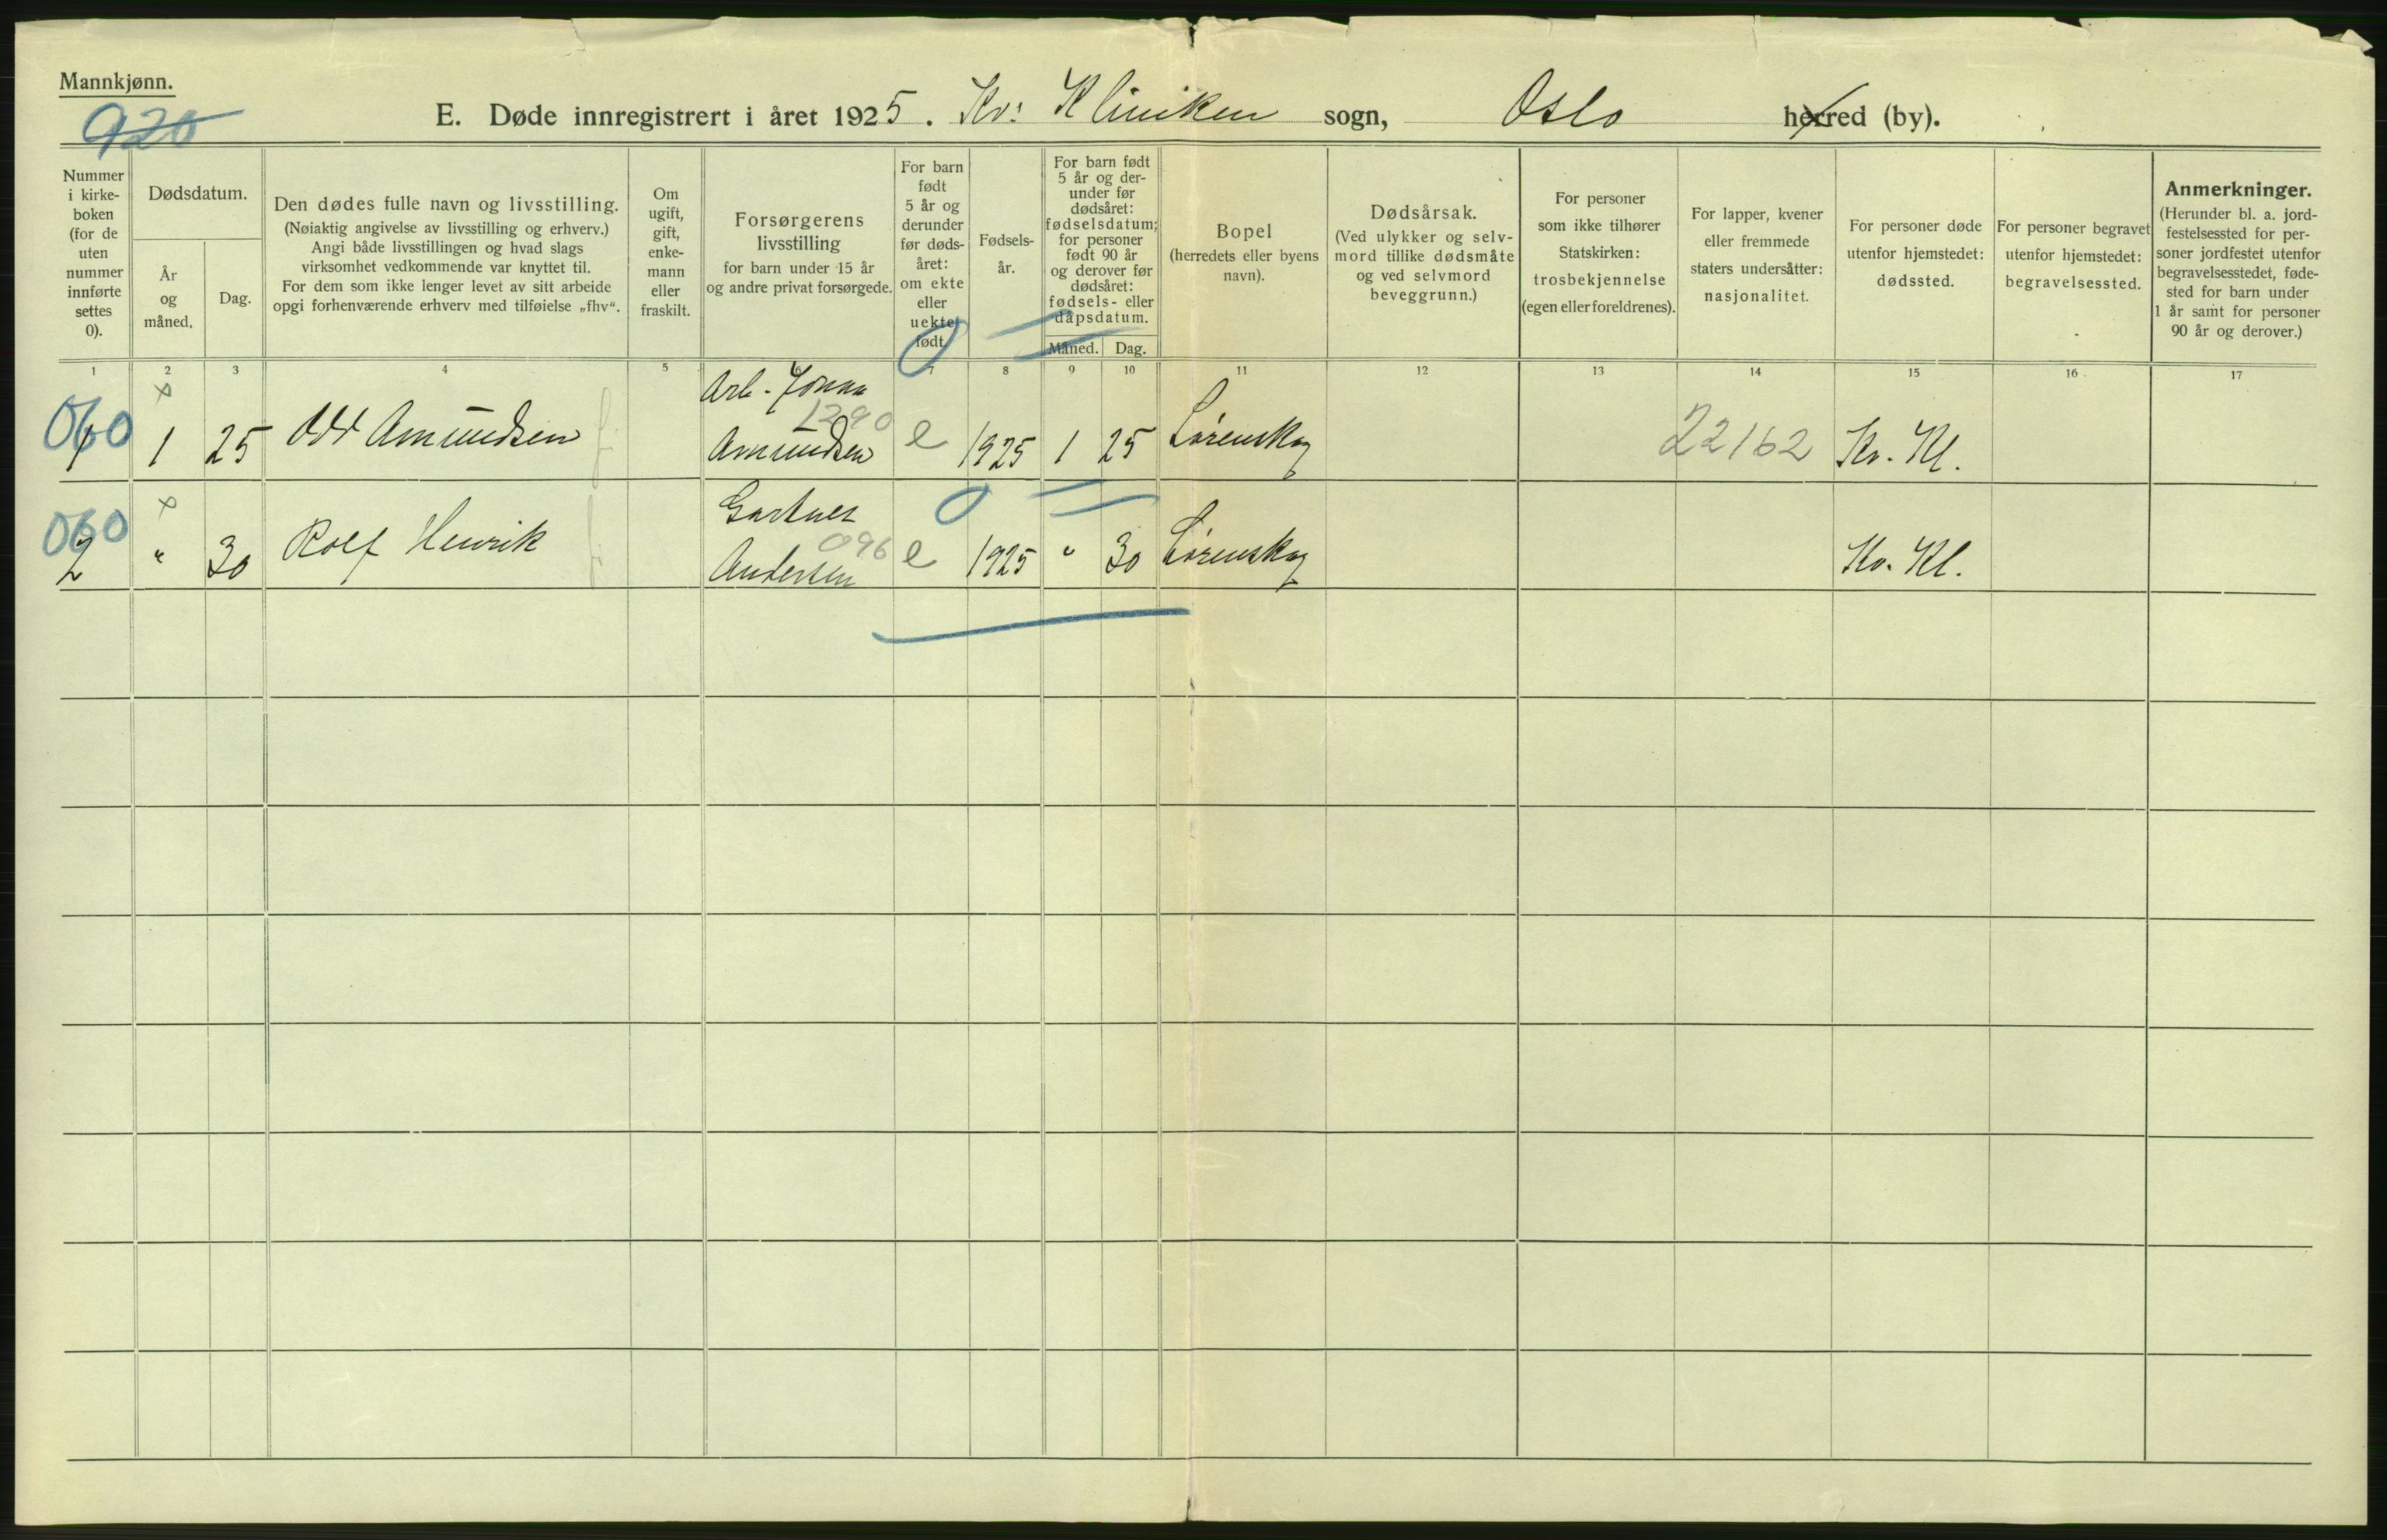 Mannkjønn.
920
E. Døde innregistrert i året 1925. Kv: Kliniken sogn, Oslo herred (by).
Nummer
i kirke-
boken
(for de
uten
nummer
innførte
settes
0).
Dødsdatum.
År
og
måned.
Dag.
Den dødes fulle navn og livsstilling.
(Nøiaktig angivelse av livsstilling og erhverv.)
Angi både livsstillingen og hvad slags
virksomhet vedkommende var knyttet til.
For dem som ikke lenger levet av sitt arbeide
opgi forhenværende erhverv med tilføielse „fhv“.
Om
ugift,
gift,
enke-
mann
eller
fraskilt.
Forsørgerens
livsstilling
for barn under 15 år
og andre privat forsørgede.
For barn
født
5 år og
derunder
før døds-
året:
om ekte
eller
uekte
født.
Fødsels-
år.
For barn født
5 år og der-
under før
dødsåret:
fødselsdatum;
for personer
født 90 år
og derover før
dødsåret:
fødsels- eller
dåpsdatum.
Måned. Dag.
Bopel
(herredets eller byens
navn).
Dødsårsak.
(Ved ulykker og selv-
mord tillike dødsmåte
og ved selvmord
beveggrunn.)
For personer
som ikke tilhører
Statskirken:
trosbekjennelse
(egen eller foreldrenes).
For lapper, kvener
eller fremmede
staters undersåtter:
nasjonalitet.
For personer døde
utenfor hjemstedet:
dødssted.
For personer begravet
utenfor hjemstedet:
begravelsessted.
Anmerkninger.
(Herunder bl. a. jord-
festelsessted for per-
soner jordfestet utenfor
begravelsesstedet, føde-
sted for barn under
1 år samt for personer
90 år og derover.)
1 2 3 4 5 6 7 8 9 10 11 12 13 14 15 16 17
Arb.
060 1290
1 1 25 Odd Amundsen Amundsen e 1925 1 25 Lørenskog 22162 Kv. Kl.
Gartner
060 096
2 " 30 Rolf Henrik Andersen e 1925 " 30 Lørenskog Kv. Kl.